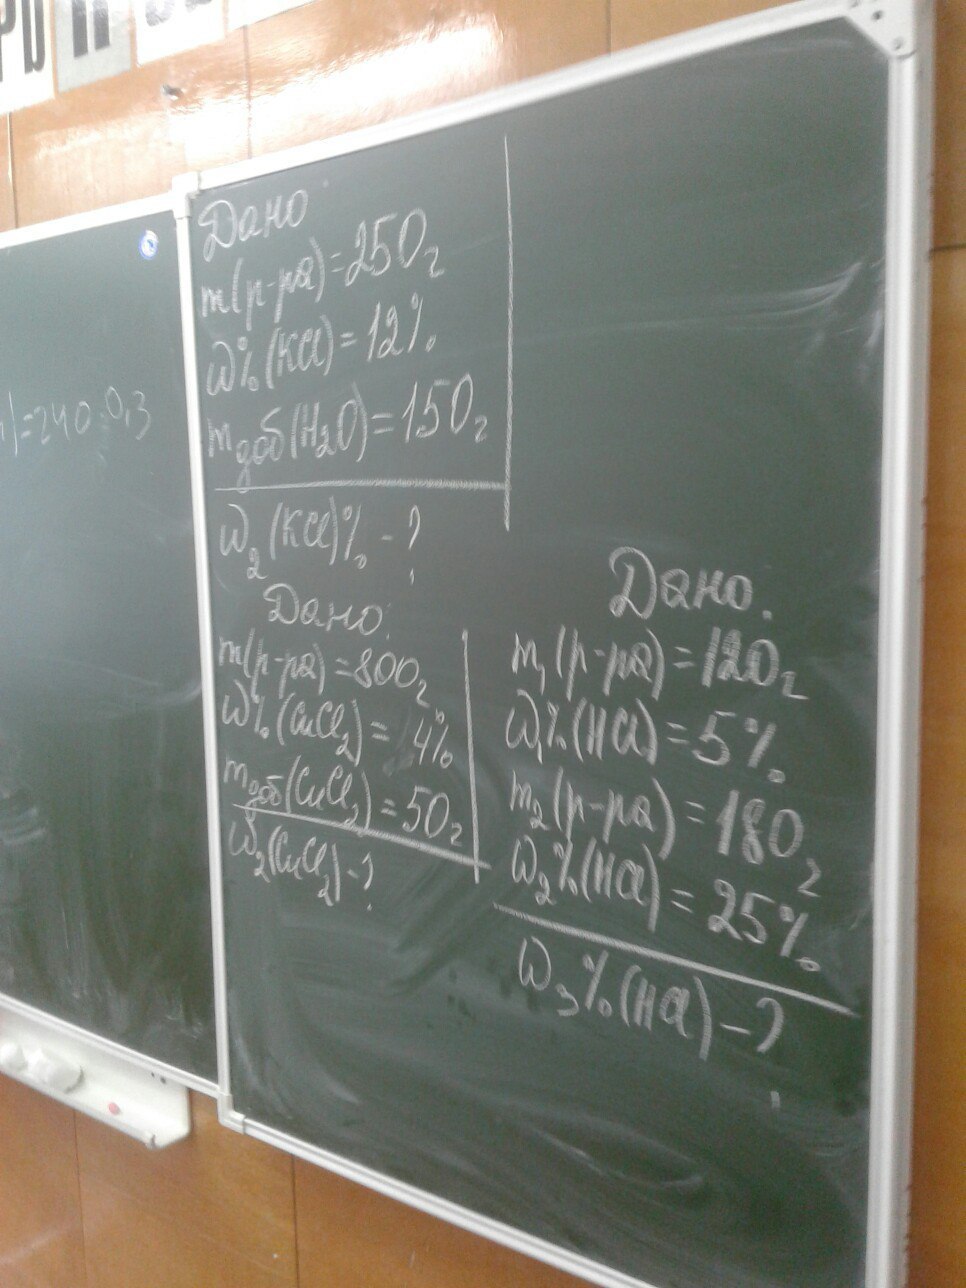 )=240·0,3
Дано
m(р-ра)=250г
W%(KCl)=12%
mдоб(H₂O)=150г
W₂(KCl)% - ?
Дано:
m(р-ра)=800г
W%(CuCl₂)=4%
mдоб(CuCl₂)=50г
W₂(CuCl₂)-?
Дано.
m₁(р-ра)=120г
W₁%(HCl)=5%
m₂(р-ра)=180г
W₂%(HCl)=25%
W₃%(HCl)-?